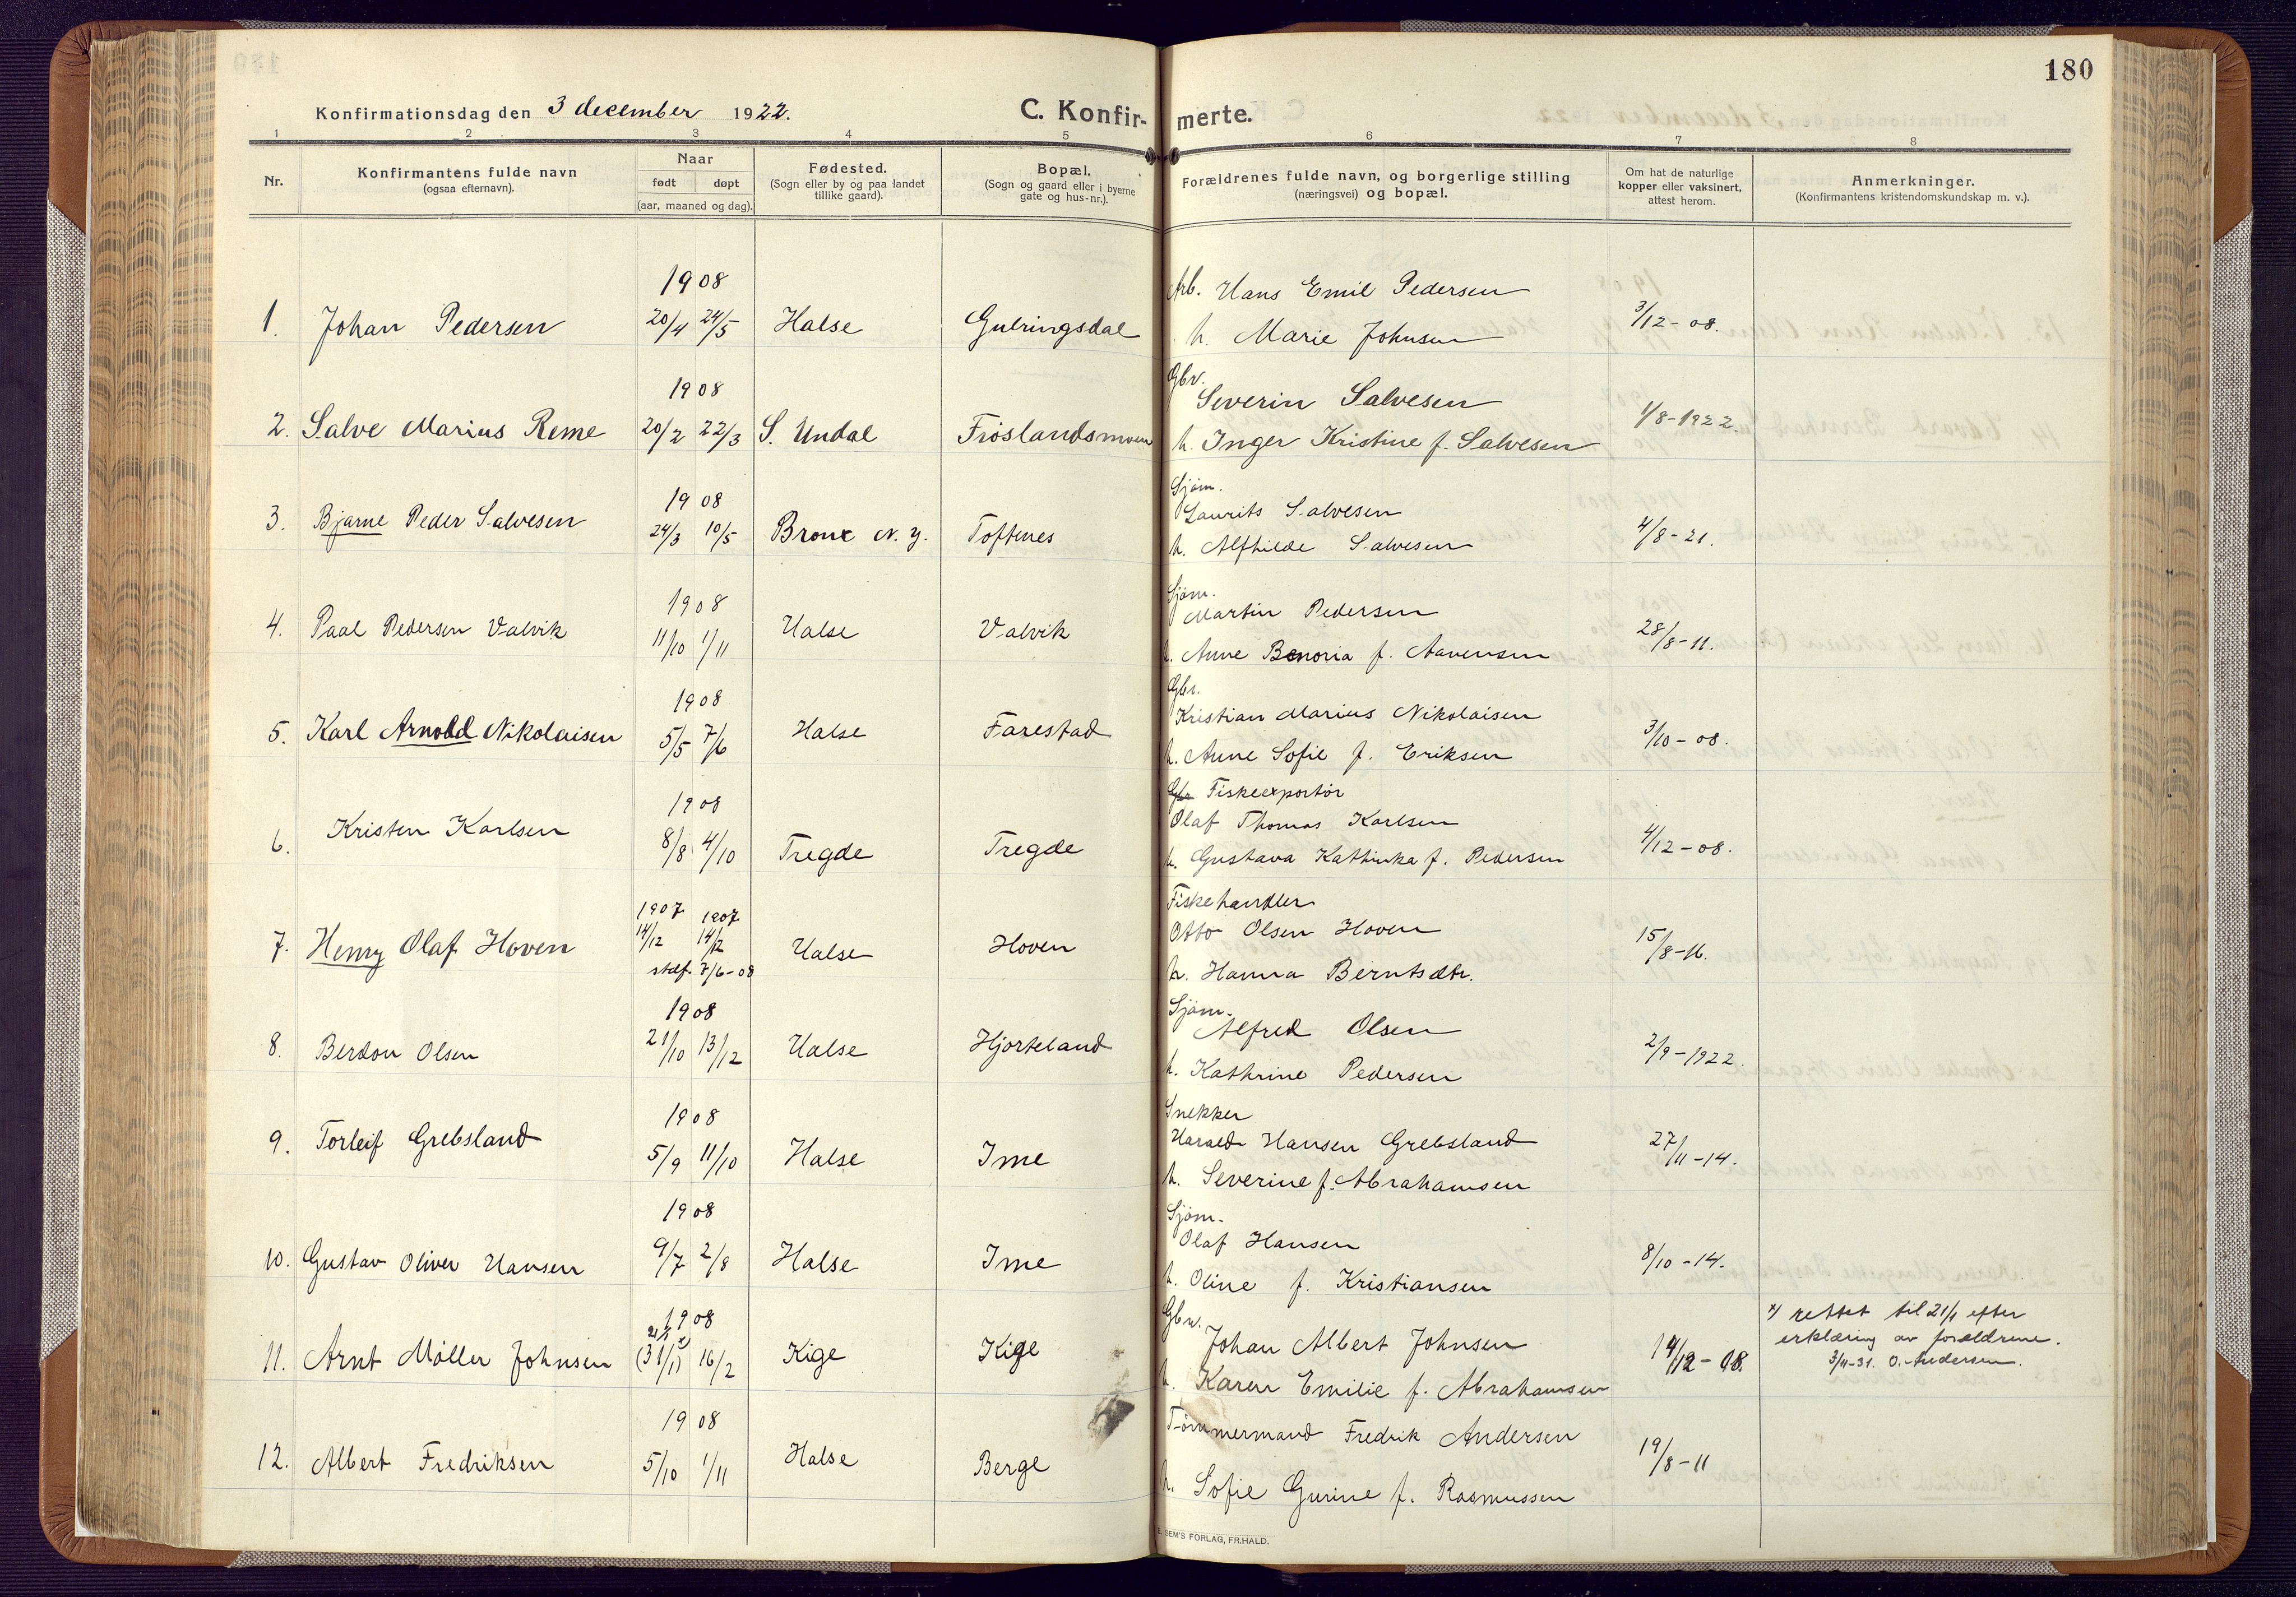 180
Konfirmationsdag den 3 december 1922.
C. Konfir- merte.
1 2 3 4 5 6 7 8
Nr.
Konfirmantens fulde navn
(ogsaa efternavn).
Naar
født døpt
(aar, maaned og dag).
Fødested.
(Sogn eller by og paa landet
tillike gaard).
Bopæl.
(Sogn og gaard eller i byerne
gate og hus-nr.).
Forældrenes fulde navn, og borgerlige stilling
(næringsvei) og bopæl.
Om hat de naturlige
kopper eller vaksinert,
attest herom.
Anmerkninger.
(Konfirmantens kristendomskundskap m. v.).
1908 Arb. Hans Emil Pedersen
1. Johan Pedersen 20/4 24/5 Halse Gulringsdal h. Marie Johnsen 3/12-08.
1908 Gbr. Severin Salvesen
2. Salve Marius Reme 20/2 22/3 S. Undal Frøslandsmoen h. Inger Kristine f. Salvesen 1/8-1922.
1908 Sjøm. Laurits Salvesen
3. Bjarne Peder Salvesen 24/3 10/5 Bronx N.y. Toftenes h. Alfhilde Salvesen 4/8-21.
1908 Sjøm. Martin Pedersen
4. Paal Pedersen Valvik 11/10 1/11 Halse Valvik h. Anne Benoria f. Aavensen 28/8-11.
1908 Gbr. Kristian Marius Nikolaisen
5. Karl Arnold Nikolaisen 5/5 7/6 Halse Farestad h. Anne Sofie f. Eriksen 3/10-08.
1908 Gbr Fiskeexportør
Olaf Thomas Karlsen
6. Kristen Karlsen 8/8 4/10 Tregde Tregde h. Gustava Kathinka f. Pedersen 4/12-08.
1907 1907 Fiskehandler
14/12 14/12 Otto Olsen Hoven
7. Henry Olaf Hoven stadf. 7/6-08 Halse Hoven h. Hanna Berntsdtr. 15/8-16.
1908 Sjøm. Alfred Olsen
8. Berdon Olsen 21/10 13/12 Halse Hjorteland h. Kathrine Pedersen 2/9-1922.
1908 Snekker
Harald Hansen Grebsland
9. Torleif Grebsland 5/9 11/10 Halse Ime h. Severine f. Abrahamsen 27/11-14.
1908 Sjøm. Olaf Hansen
10. Gustav Oliver Hansen 9/7 2/8 Halse Ime h. Oline f. Kristiansen 8/10-14.
1908 Gbr. Johan Albert Johnsen x) rettet til 21/1 efter
21/1 x) erklæring av forældrene.
11. Arnt Møller Johnsen (31/1) 16/2 Kige Kige h. Karen Emilie f. Abrahamsen 14/12-08. 3/11-31. O. Andersen.
1908 Tømmermand Fredrik Andersen
12. Albert Fredriksen 5/10 1/11 Halse Berge h. Sofie Gurine f. Rasmussen 19/8-11
E. SEM'S FORLAG, FR.HALD.